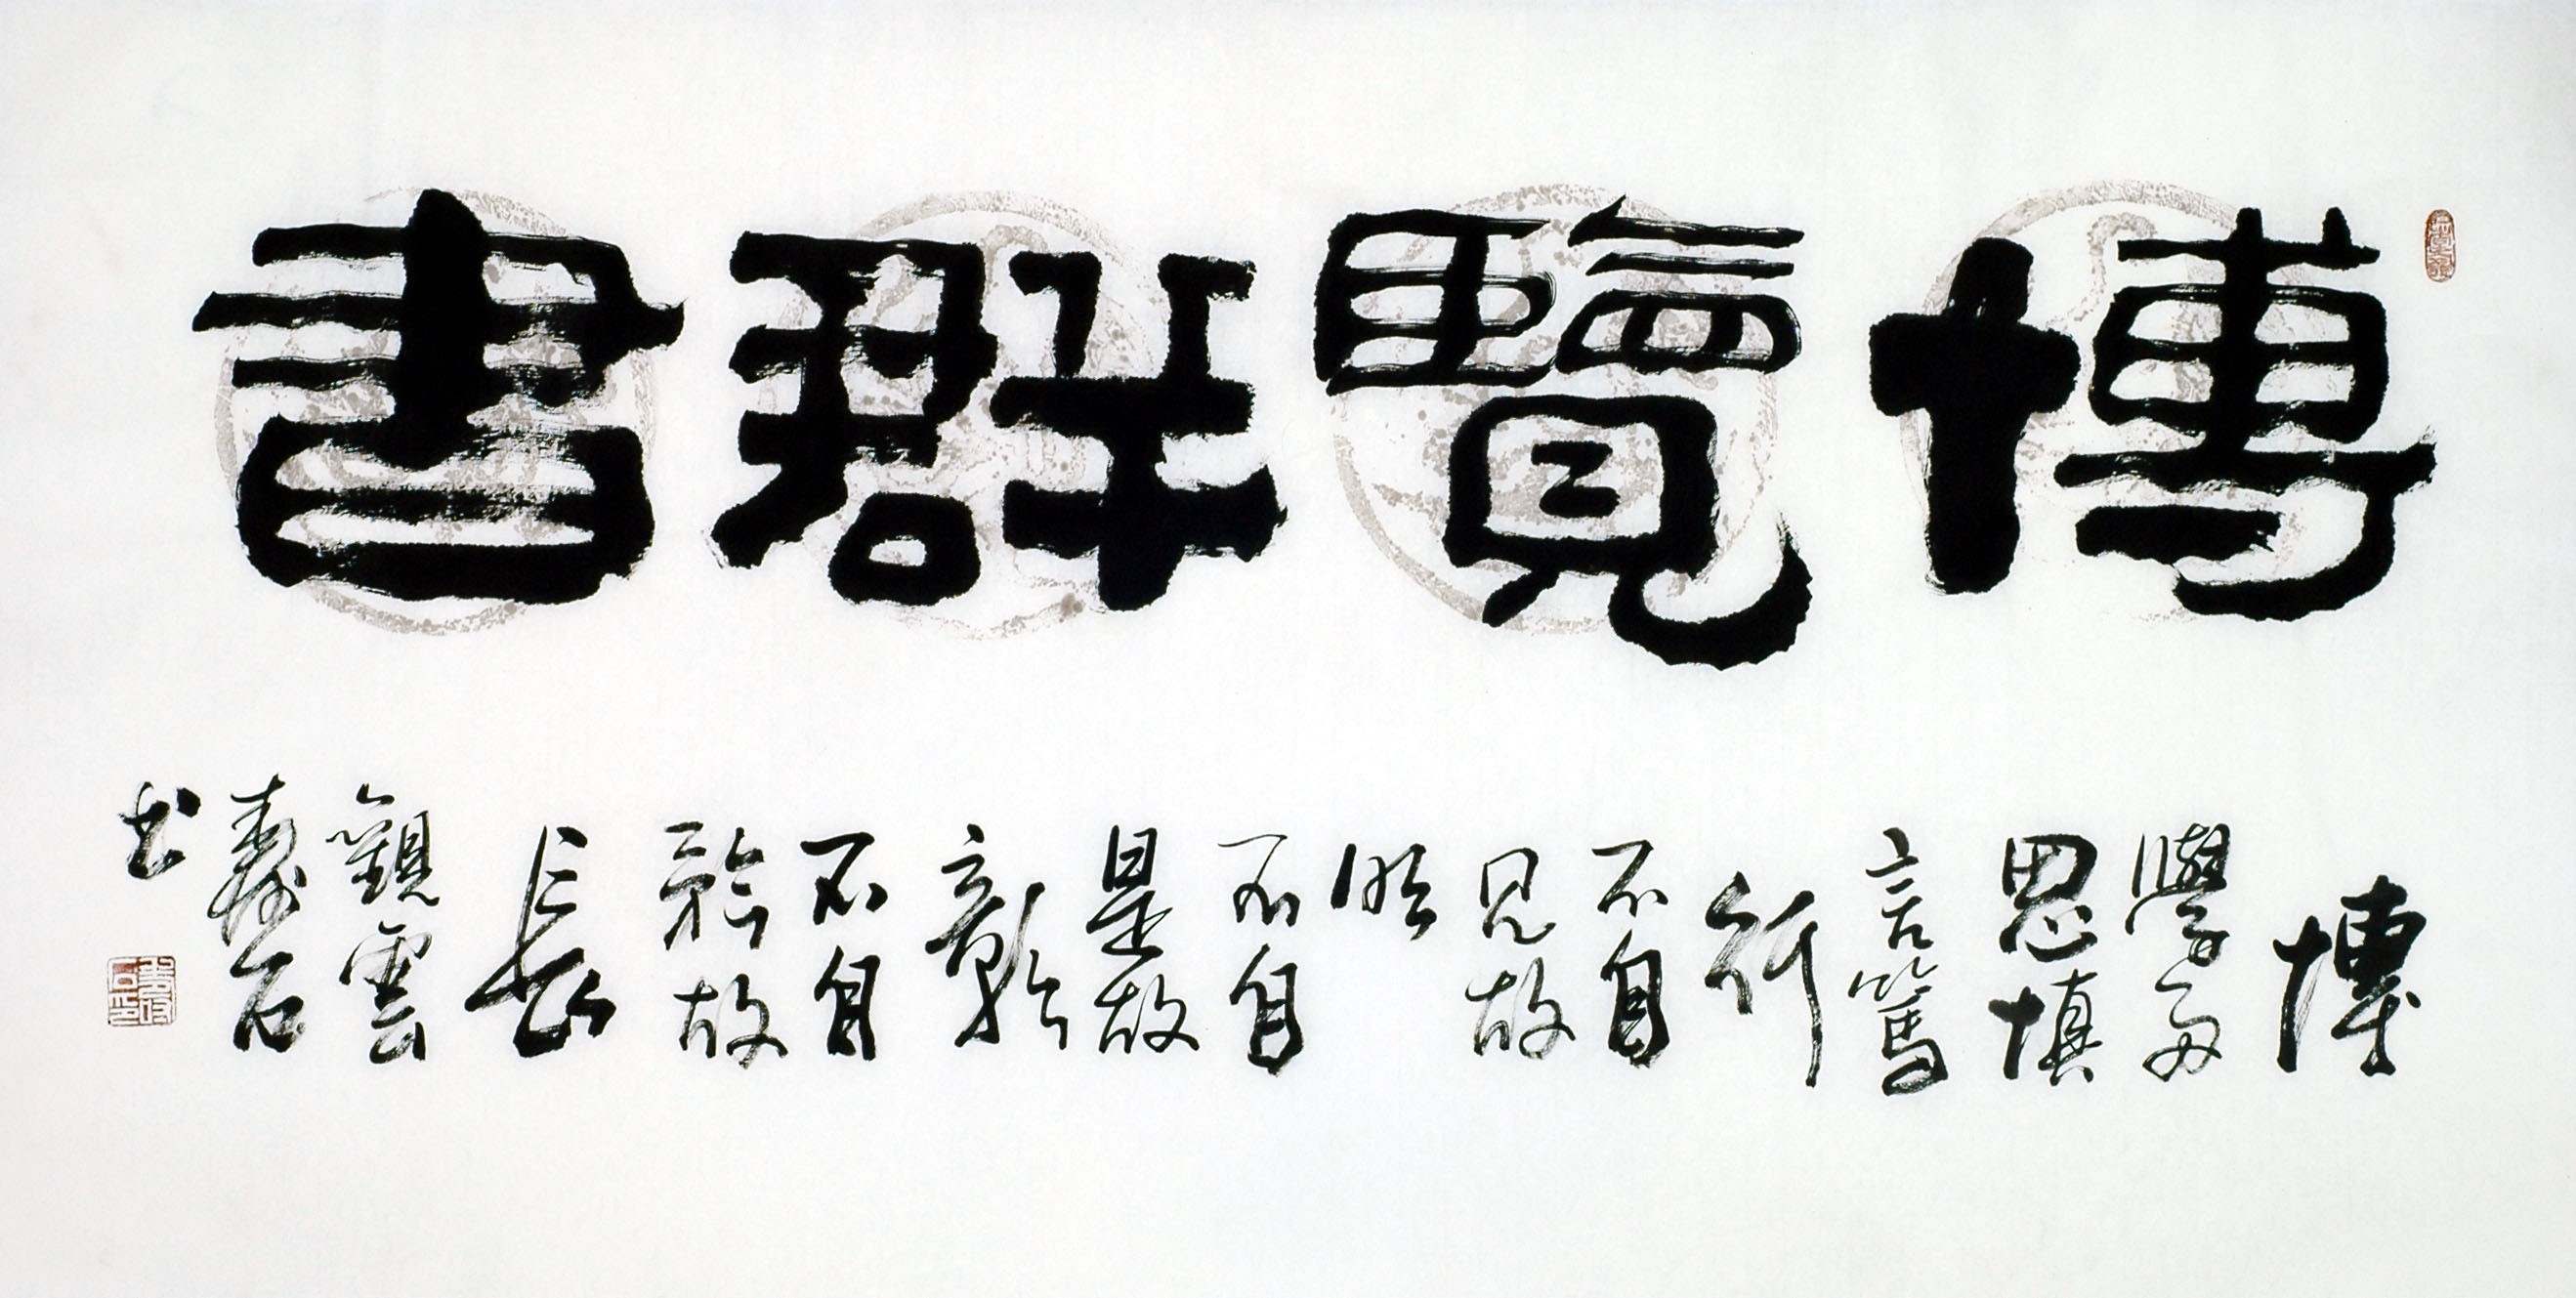 博覽群書
博
學多
思慎
言篤
行
不自
見故
明
不自
是故
彰
不自
矜故
長
觀雲
壽石
书